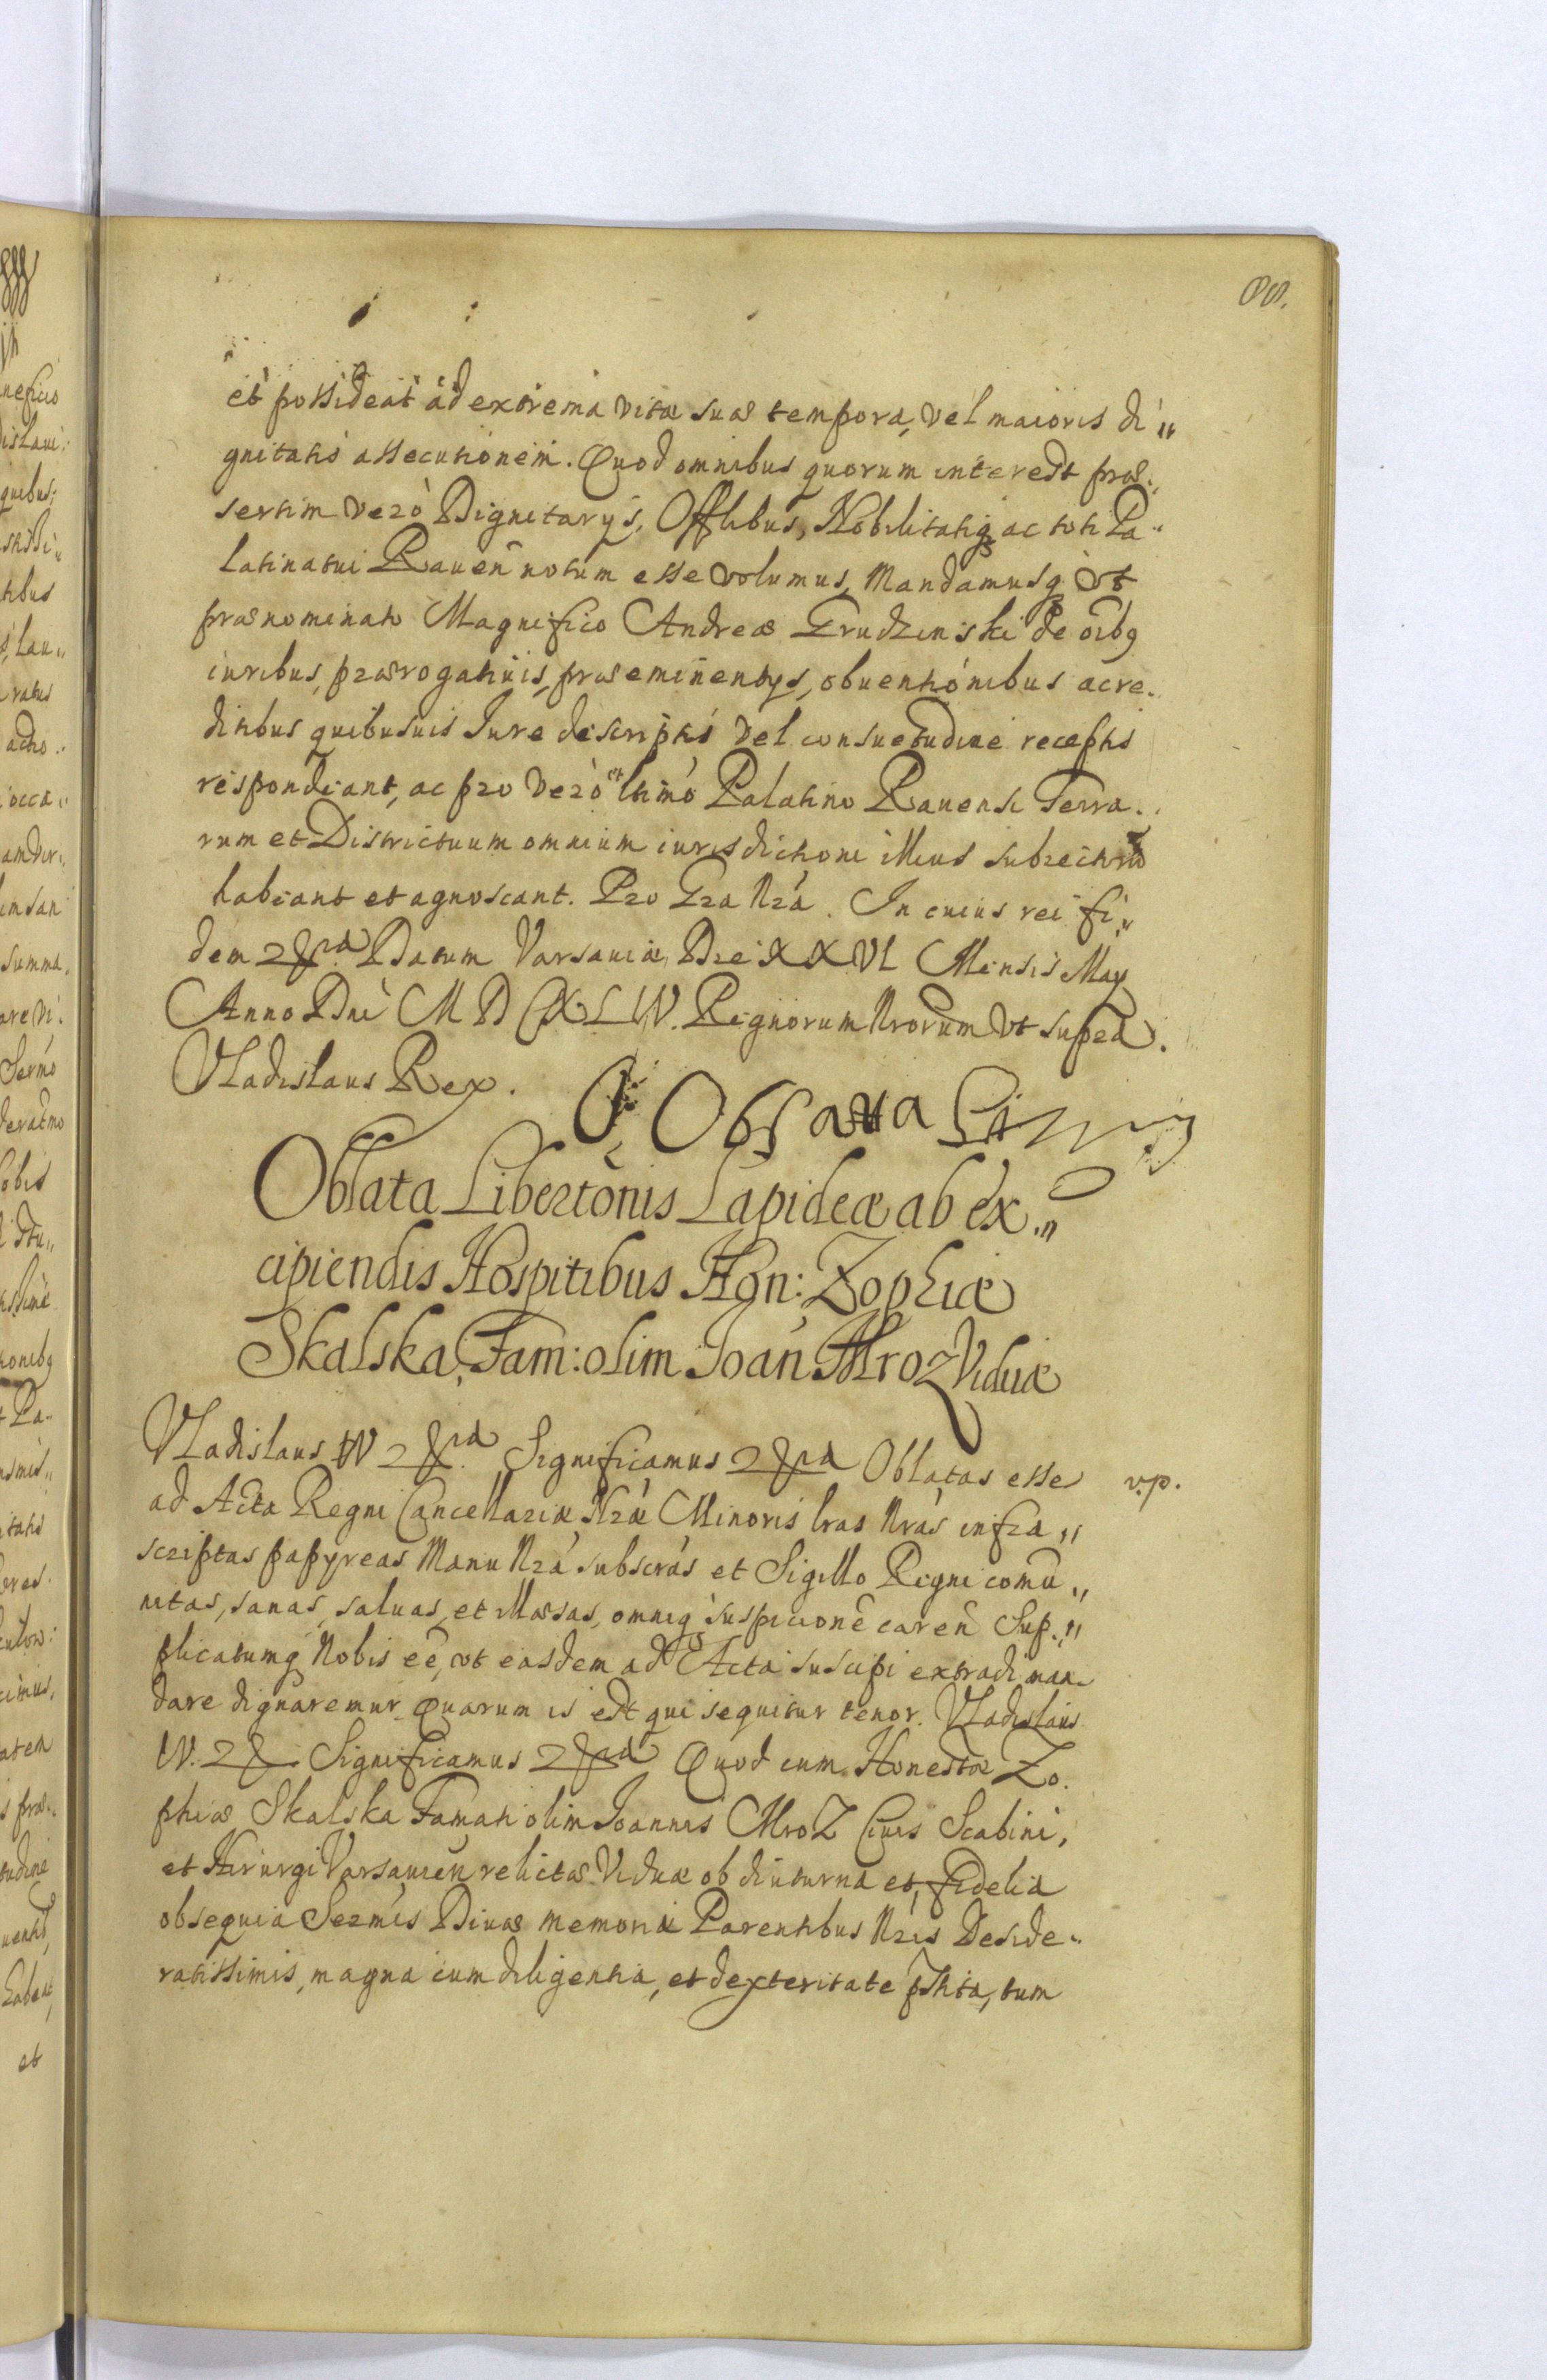 88.
et possideat ad extrema vitæ suæ tempora, vel maioris di„
gnitatis assecutionem. Quod omnibus quorum interest præ„
sertim verò Dignitarijs, Offlibus, Nobilitatiq ac toti Pa„
latinatui Rauen notum esse volumus, Mandamusq vt
prænominato Magnifico Andreæ Grudzinski de oibq
iuribus, prærogatiuis, præeminentijs, obuentionibus ac re„
ditibus quibusuis Iure descriptis vel consuetudine receptis
respondeant, ac pro verò et ltimo Palatino Rauensi Terra„
rum et Districtuum omnium iurisdictioni illius subiectarum
habeant et agnoscant. Pro Gra Nra. In cuius rei fi„
dem Datum Varsauiæ Die XXVI Mensis Maij
Anno Dni M D C XL IV. Regnorum Nrorum vt supra.
Vladislaus Rex.
Oblata Libertonis Lapideæ ab ex„
cipiendis Hospitibus Hon: Zophiæ
Skalska, Fam: olim Ioan Mroz Viduæ
Vladislaus IV Significamus Oblatas esse v.p.
ad Acta Regni Cancellariæ Nræ Minoris lras Nras infra„
scriptas papyreas Manu Nra subscras et Sigillo Regni comu„
nitas, sanas, saluas, et illæsas, omniq suspicione caren Sup„
plicatumq Nobis ee, vt easdem ad Acta suscipi extradi man„
dare dignaremur Quarum is est qui sequitur tenor. Vladislaus
IV. Significamus Quod cum Honestæ Zo„
phiæ Skalska Famati olim Ioannis Mroz Ciuis Scabini,
et Hirurgi Varsauien relictæ Viduæ ob diuturna et fidelia
obsequia Sermis Diuæ memoriæ Parentibus Nris Deside„
ratissimis, magna cum diligentia, et dexteritate pstita, tum